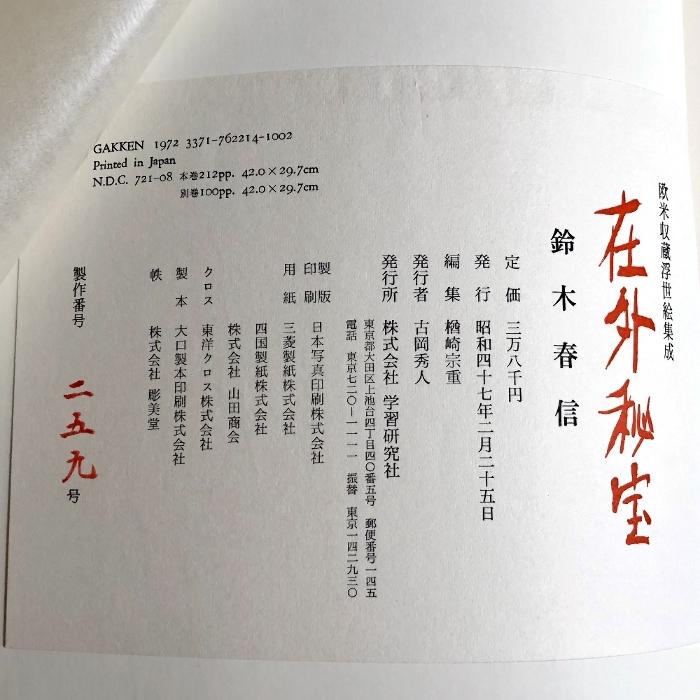 欧米収蔵浮世絵集成
在外秘宝
鈴木春信
定価 三万八千円
発行 昭和四十七年二月二十五日
編集 楢崎宗重
発行者 古岡秀人
発行所 株式会社 学習研究社
東京都大田区上池台四丁目四〇番五号 郵便番号一四五
電話 東京七二〇―一一一一 振替 東京一四二九三〇
製版印刷 日本写真印刷株式会社
用紙 三菱製紙株式会社
四国製紙株式会社
株式会社 山田商会
クロス 東洋クロス株式会社
製本 大口製本印刷株式会社
帙 株式会社 彫美堂
製作番号 二五九号
GAKKEN 1972 3371-762214-1002
Printed in Japan
N.D.C. 721-08 本巻212pp. 42.0×29.7cm
別巻100pp. 42.0×29.7cm